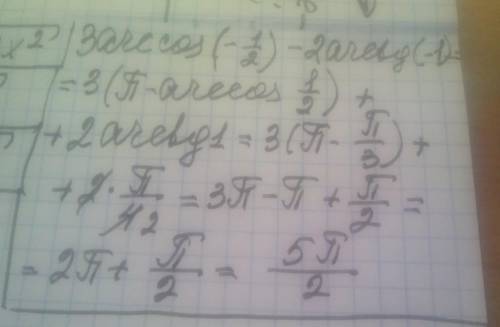 x² 3arccos(-1/2) - 2arctg(-1)=
= 3(π - arccos 1/2) +
+ 2arctg1 = 3(π - π/3) +
+ 2·π/4 2 = 3π - π + π/2 =
= 2π + π/2 = 5π/2